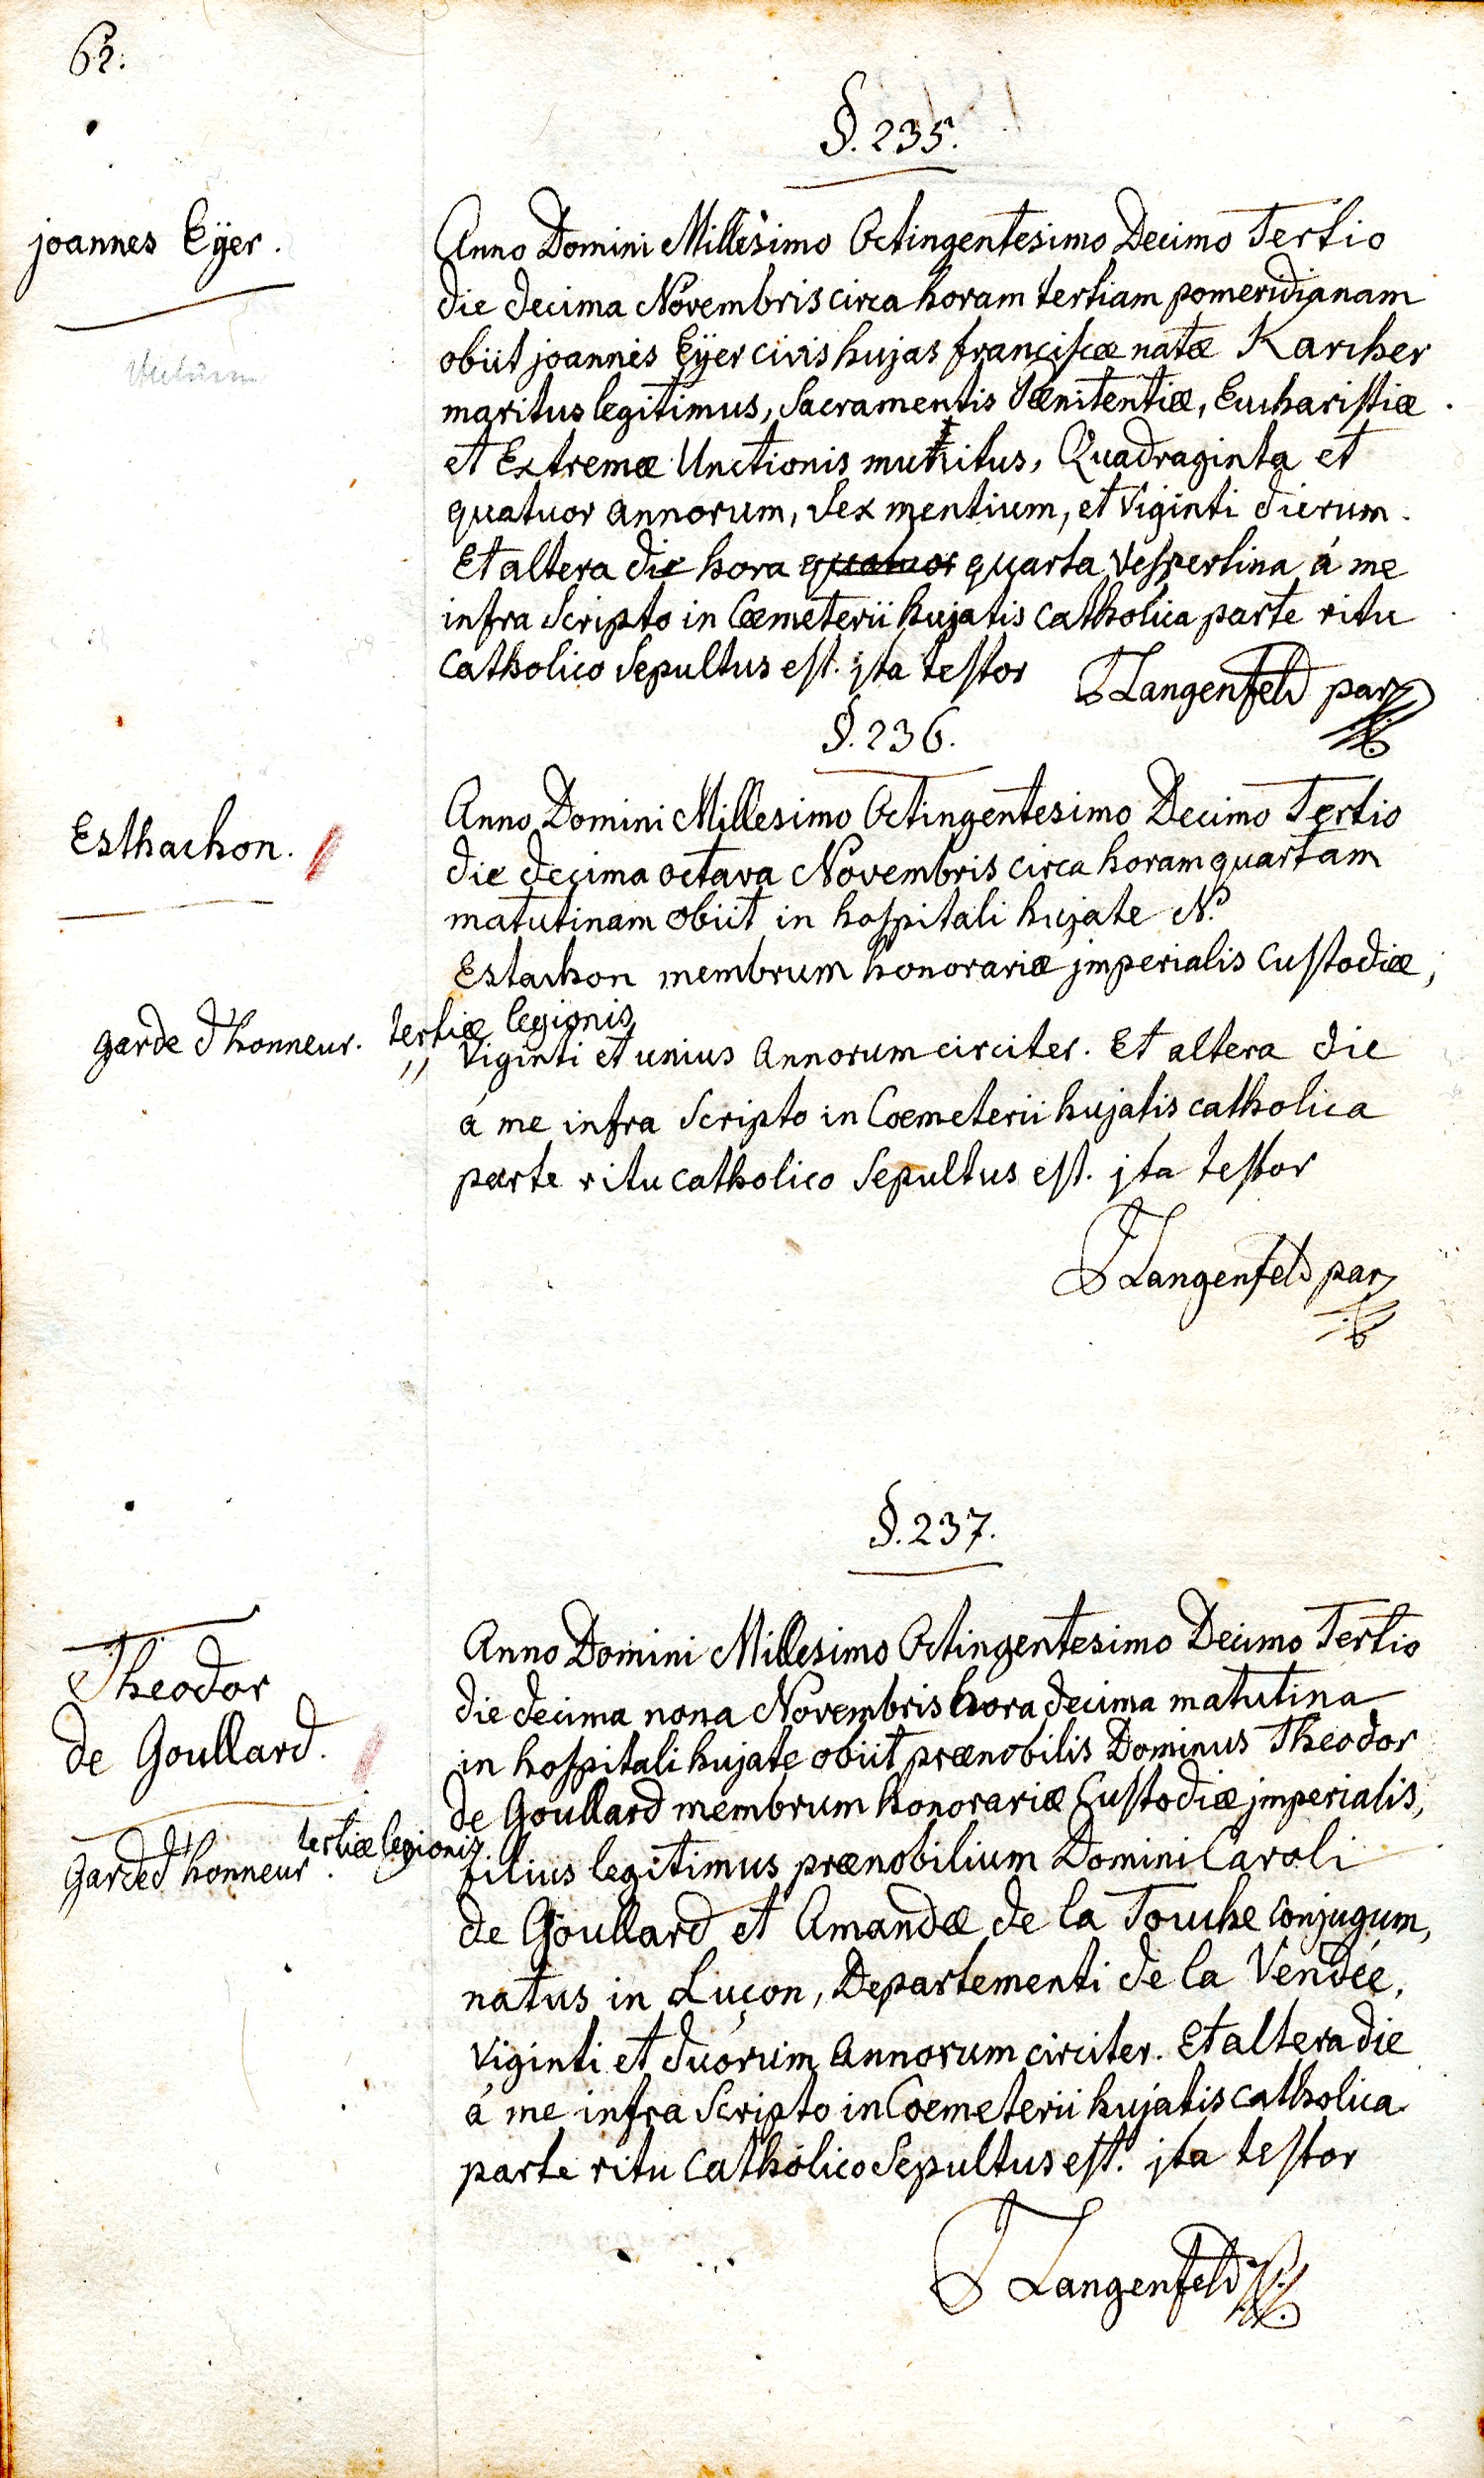 62.
§. 235.
joannes Eÿer.
Anno Domini Millesimo Octingentesimo Decimo Tertio
die decima Novembris circa horam tertiam pomeridianam
obiit joannes Eÿer civis hujas francisæ natæ Karcher
maritus legitimus, Sacramentis Pænitentiæ, Eucharistiæ
et Extremæ Unctionis munitus, Quadraginta et
quatuor annorum, Sex mentium, et viginti dierum.
Et altera die hora quatuor quarta vespertina á me
infra Scripto in Cœmeterii hujatis catholica parte ritu
catholico Sepultus est. jta testor Langenfeld par
§. 236.
Esthachon.
Anno Domini Millesimo Octingentesimo Decimo Tertio
die decima octava Novembris circa horam quartam
matutinam obiit in hospitali hujate N.
Estachon membrum honorariæ jmperialis Custodiæ,
garde d'honneur. tertiæ legionis
viginti et unius annorum circiter. Et altera die
á me infra Scripto in Coemeterii hujatis catholica
parte ritu catholico Sepultus est. jta testor
Langenfeld par
§. 237.
Theodor
de Goullard.
Anno Domini Millesimo Octingentesimo Decimo Tertio
die decima nona Novembris hora decima matutina
in hospitali hujate obiit prænobilis Dominus Theodor
de Goullard membrum honorariæ Custodiæ jmperialis,
Garde d'honneur. tertiæ legionis
filius legitimus prænobilium Domini Caroli
de Goullard et Amandæ de la Touche conjugum,
natus in Luçon, Departementi de la Vendée,
viginti et duorum annorum circiter. Et altera die
á me infra Scripto in Coemeterii hujatis catholica
parte ritu catholico Sepultus est. jta testor
Langenfeld